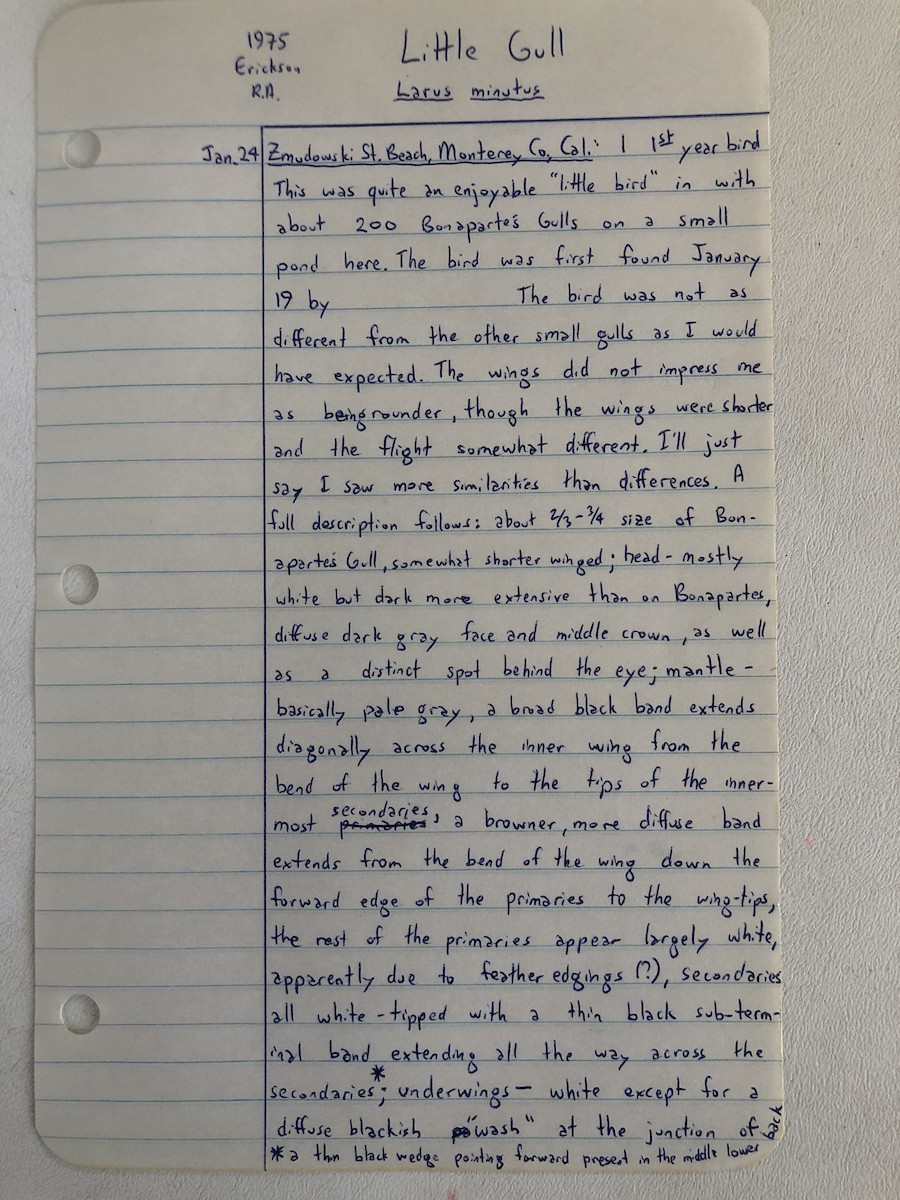 1975
Erickson
R.A.
Little Gull
Larus minutus
Jan. 24 Zmudowski St. Beach, Monterey Co, Cal.: 1 1st year bird
This was quite an enjoyable "little bird" in with
about 200 Bonaparte's Gulls on a small
pond here. The bird was first found January
19 by The bird was not as
different from the other small gulls as I would
have expected. The wings did not impress me
as being rounder, though the wings were shorter
and the flight somewhat different. I'll just
say I saw more similarities than differences. A
full description follows: about 2/3-3/4 size of Bon-
aparte's Gull, somewhat shorter winged; head - mostly
white but dark more extensive than on Bonapartes,
diffuse dark gray face and middle crown, as well
as a distinct spot behind the eye; mantle -
basically pale gray, a broad black band extends
diagonally across the inner wing from the
bend of the wing to the tips of the inner-
most primaries secondaries, a browner, more diffuse band
extends from the bend of the wing down the
forward edge of the primaries to the wing-tips,
the rest of the primaries appear largely white,
apparently due to feather edgings (?), secondaries
all white-tipped with a thin black sub-term-
inal band extending all the way across the
secondaries*; underwings - white except for a
diffuse blackish "wash" at the junction of
* a thin black wedge pointing forward present in the middle lower back